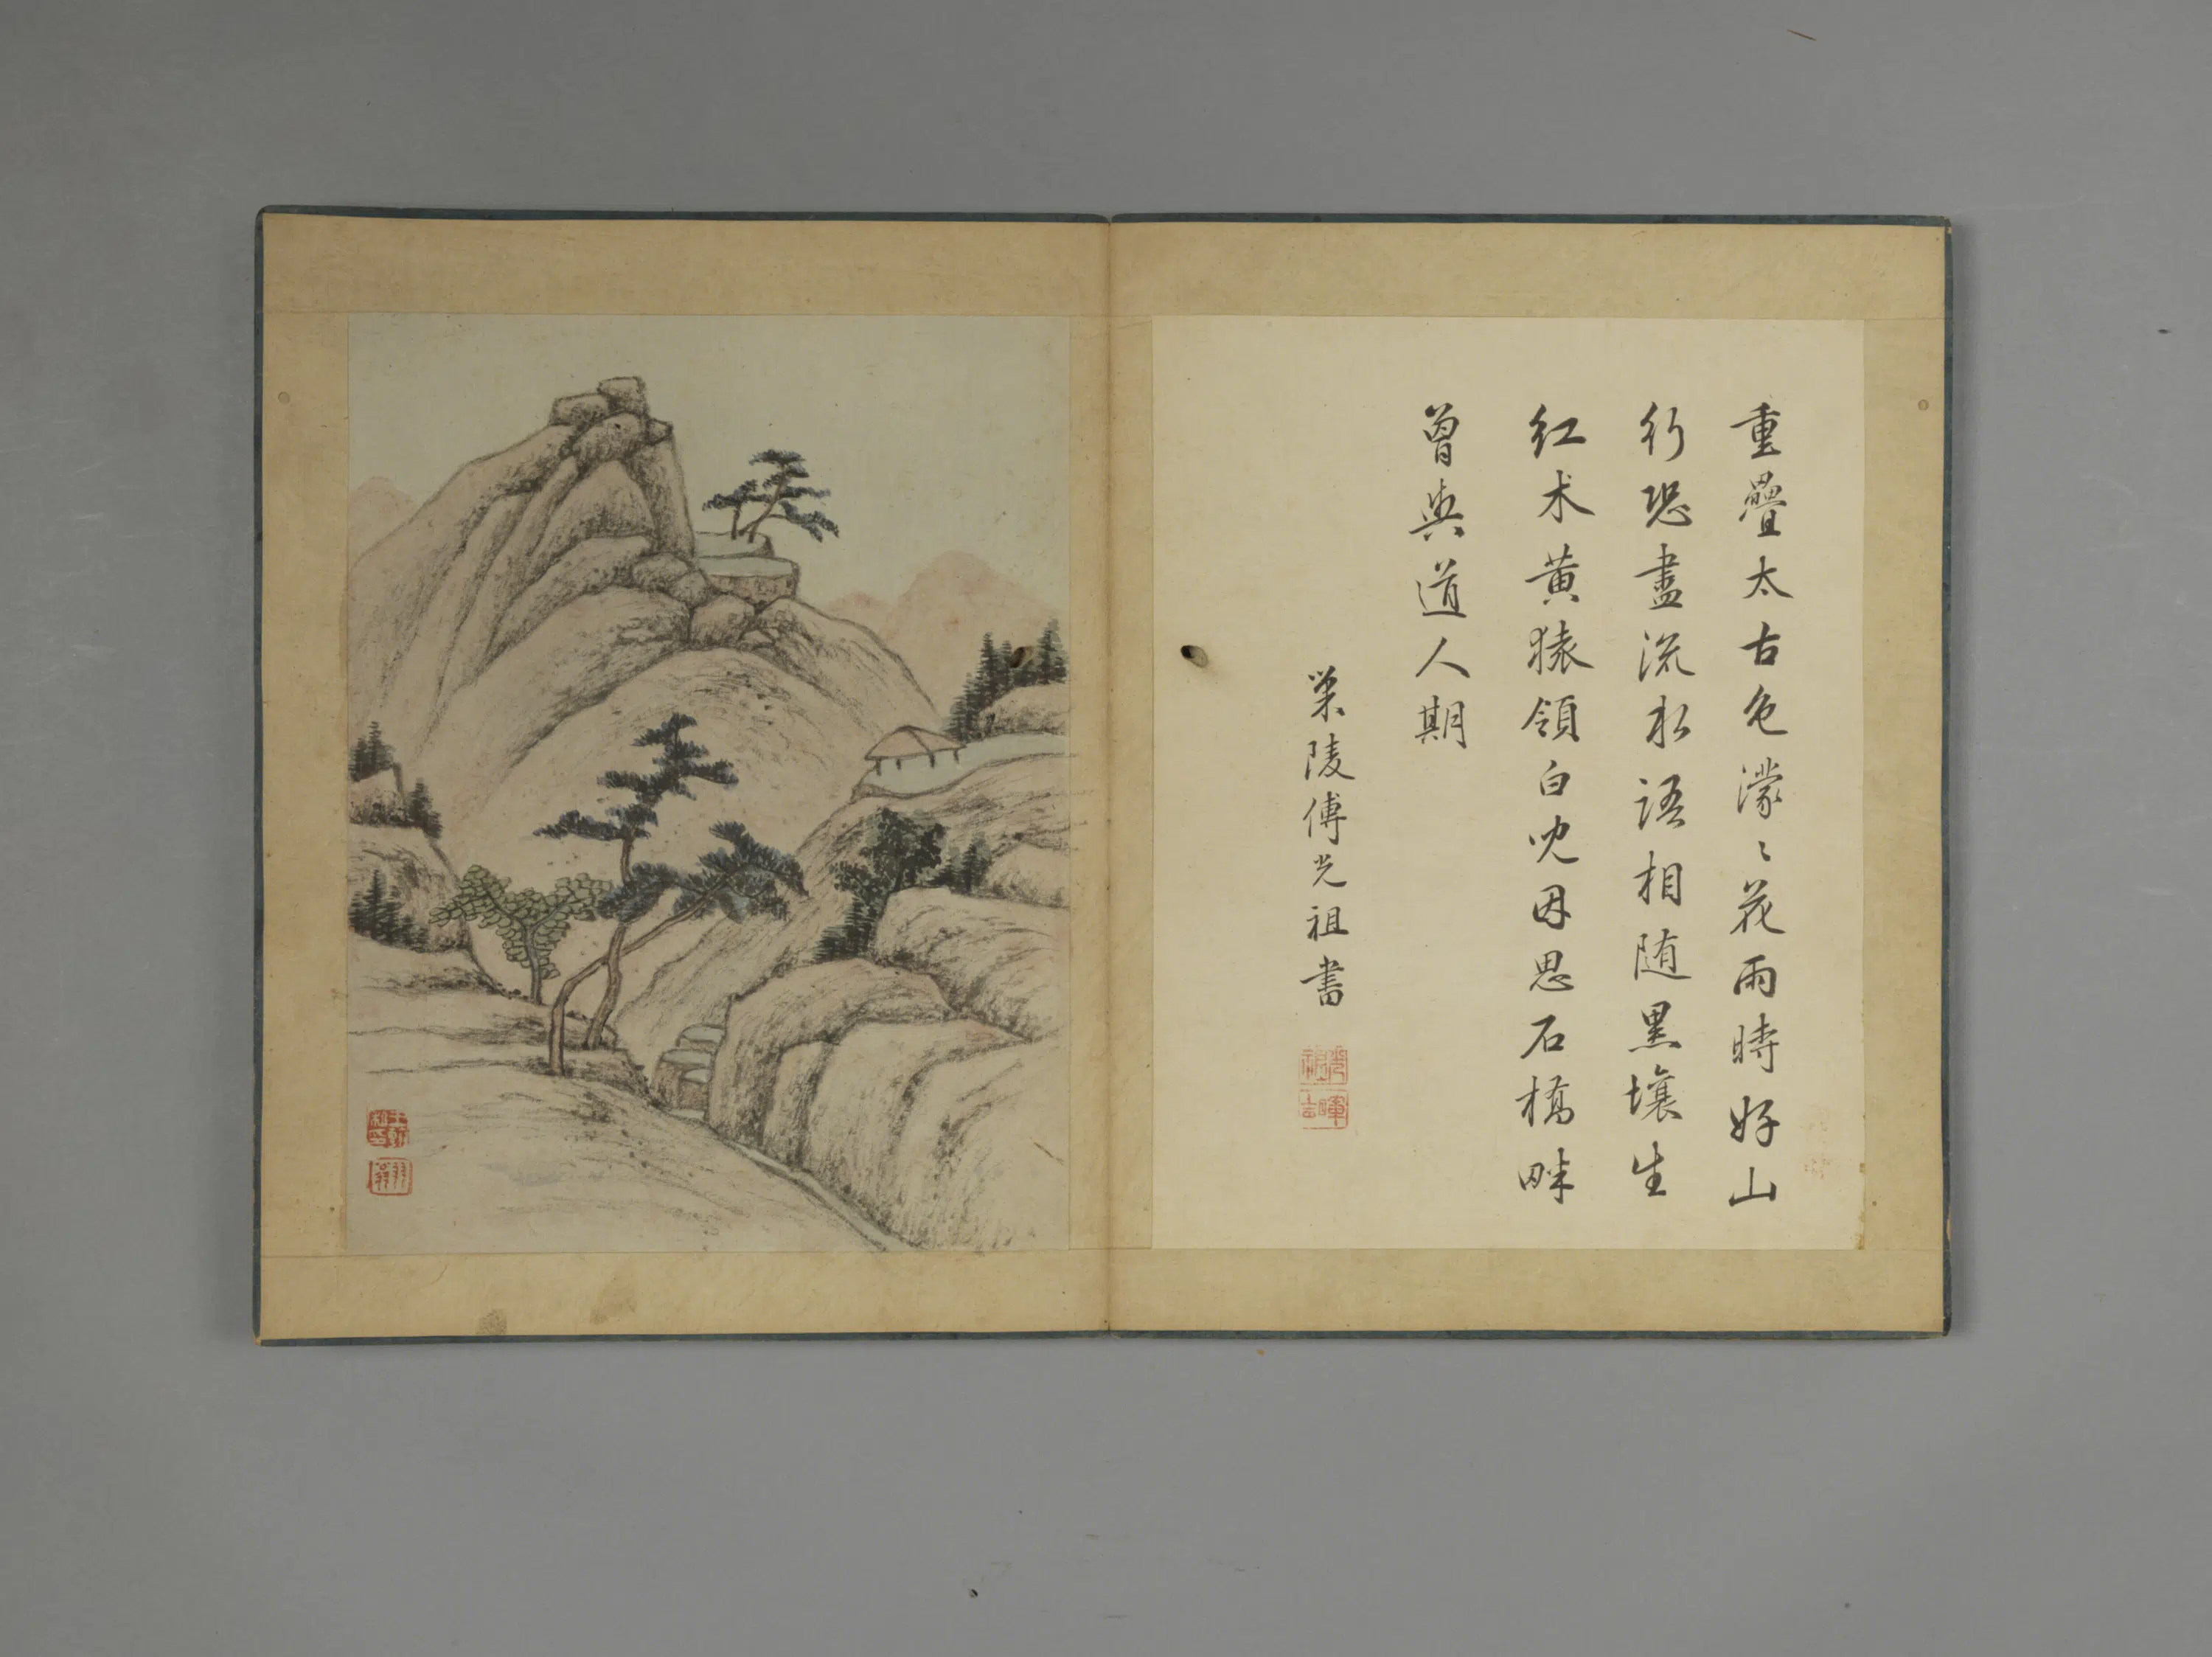 重疊太古色濛〻花雨時好山
行恐盡流水語相随黑壤生
紅术黄猿領白兒因思石橋畔
曾與道人期
樂陵傅光祖書
光祖